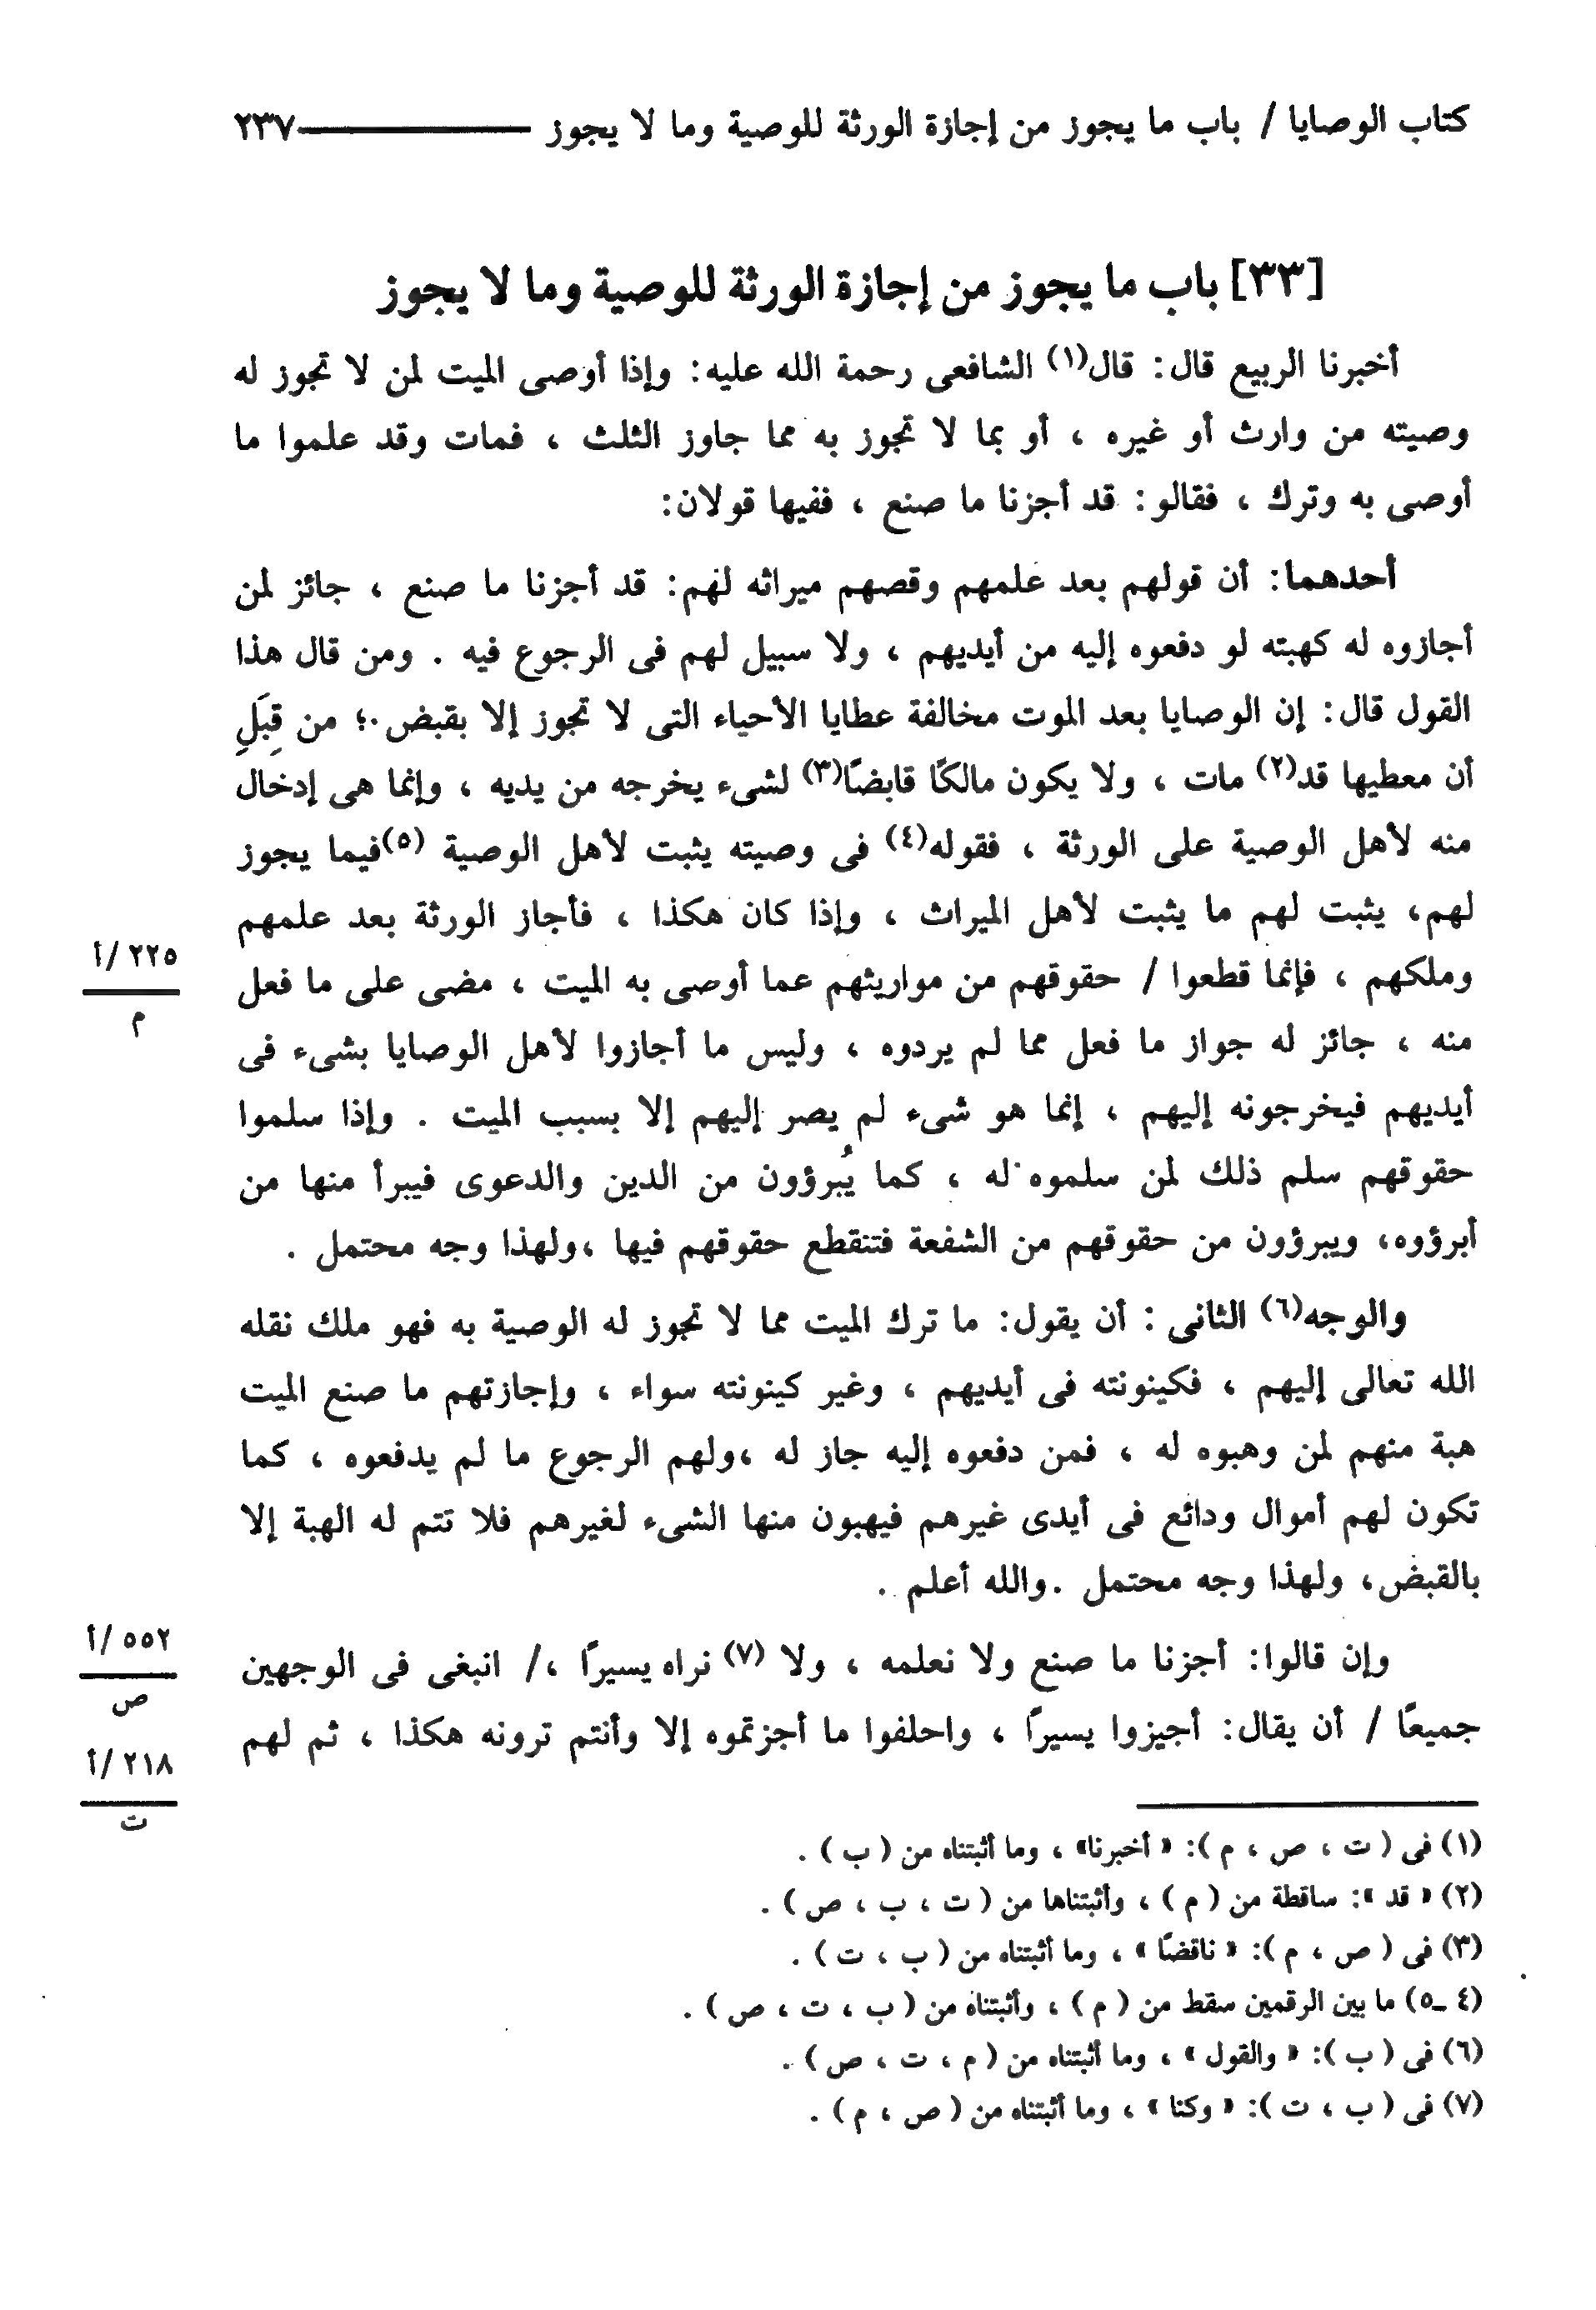 كتاب الوصايا / باب ما يجوز من إجازة الورثة للوصية وما لا يجوز ——— ٢٣٧
[٣٣] باب ما يجوز من إجازة الورثة للوصية وما لا يجوز
أخبرنا الربيع قال: قال(١) الشافعى رحمة الله عليه: وإذا أوصى الميت لمن لا تجوز له
وصيته من وارث أو غيره ، أو بما لا تجوز به مما جاوز الثلث ، فمات وقد علموا ما
أوصى به وترك ، فقالو: قد أجزنا ما صنع ، ففيها قولان:
أحدهما: أن قولهم بعد علمهم وقصهم ميراثه لهم: قد أجزنا ما صنع ، جائز لمن
أجازوه له كهبته لو دفعوه إليه من أيديهم ، ولا سبيل لهم فى الرجوع فيه . ومن قال هذا
القول قال: إن الوصايا بعد الموت مخالفة عطايا الأحياء التى لا تجوز إلا بقبض ؛ من قِبَلِ
أن معطيها قد(٢) مات ، ولا يكون مالكًا قابضًا(٣) لشىء يخرجه من يديه ، وإنما هى إدخال
منه لأهل الوصية على الورثة ، فقوله(٤) فى وصيته يثبت لأهل الوصية (٥)فيما يجوز
لهم، يثبت لهم ما يثبت لأهل الميراث ، وإذا كان هكذا ، فأجاز الورثة بعد علمهم
وملكهم ، فإنما قطعوا / حقوقهم من مواريثهم عما أوصى به الميت ، مضى على ما فعل
٢٢٥ /أ
م
منه ، جائز له جواز ما فعل مما لم يردوه ، وليس ما أجازوا لأهل الوصايا بشىء فى
أيديهم فيخرجونه إليهم ، إنما هو شىء لم يصر إليهم إلا بسبب الميت . وإذا سلموا
حقوقهم سلم ذلك لمن سلموه له ، كما يُبرؤون من الدين والدعوى فيبرأ منها من
أبرؤوه، ويبرؤون من حقوقهم من الشفعة فتنقطع حقوقهم فيها ،ولهذا وجه محتمل .
والوجه(٦) الثانى : أن يقول: ما ترك الميت مما لا تجوز له الوصية به فهو ملك نقله
الله تعالى إليهم ، فكينونته فى أيديهم ، وغير كينونته سواء ، وإجازتهم ما صنع الميت
هبة منهم لمن وهبوه له ، فمن دفعوه إليه جاز له ،ولهم الرجوع ما لم يدفعوه ، كما
تكون لهم أموال ودائع فى أيدى غيرهم فيهبون منها الشىء لغيرهم فلا تتم له الهبة إلا
بالقبض، ولهذا وجه محتمل .والله أعلم .
وإن قالوا: أجزنا ما صنع ولا نعلمه ، ولا (٧) نراه يسيرًا ،/ انبغى فى الوجهين
٥٥٢ /أ
ص
جميعًا / أن يقال: أجيزوا يسيرًا ، واحلفوا ما أجزتموه إلا وأنتم ترونه هكذا ، ثم لهم
٢١٨ /أ
ت
(١) فى ( ت ، ص ، م ): « أخبرنا» ، وما أثبتناه من ( ب ) .
(٢) « قد »: ساقطة من ( م ) ، وأثبتناها من ( ت ، ب ، ص ) .
(٣) فى ( ص ، م ): « ناقضًا » ، وما أثبتناه من ( ب ، ت ) .
(٤ ـ٥) ما بين الرقمين سقط من ( م ) ، وأثبتناه من ( ب ، ت ، ص ) .
(٦) فى ( ب ): « والقول » ، وما أثبتناه من ( م ، ت ، ص ) .
(٧) فى ( ب ، ت ): « وكنا » ، وما أثبتناه من ( ص ، م ) .